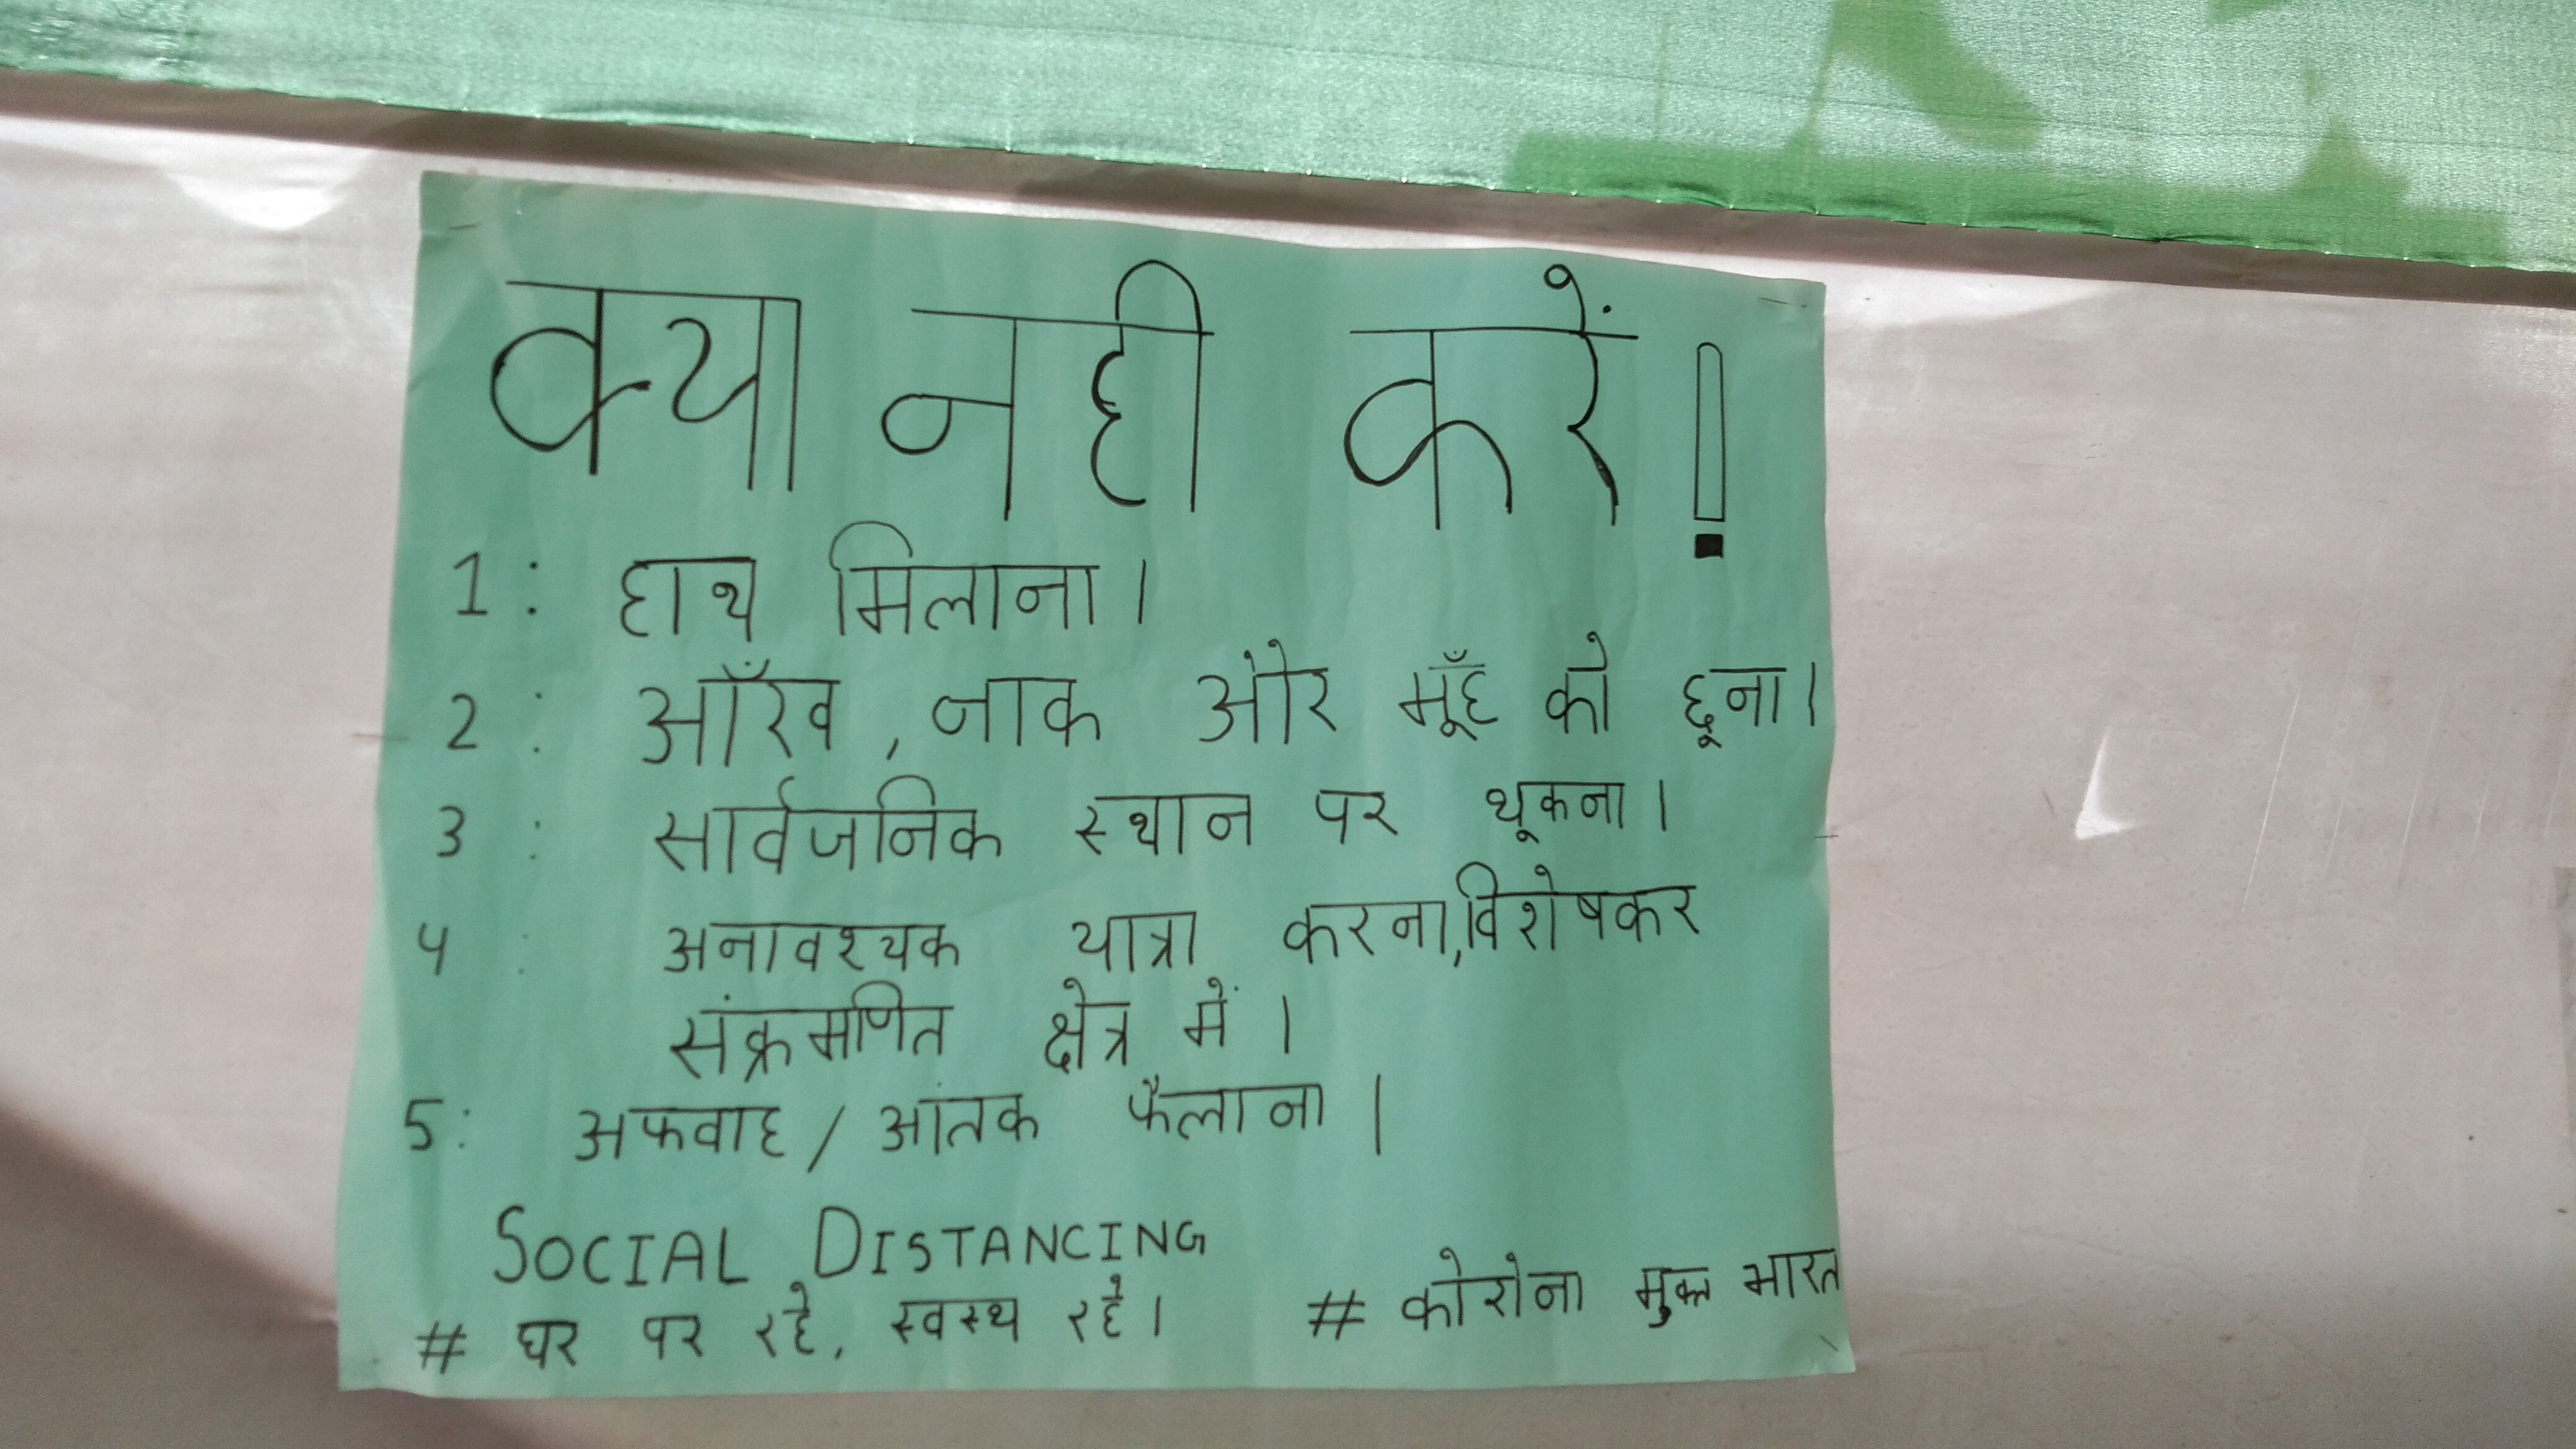 क्या नही करें!
1: हाथ मिलाना।
2: आँख, नाक और मूँह को छूना।
3: सार्वजनिक स्थान पर थूकना।
4: अनावश्यक यात्रा करना, विशेषकर
संक्रमणित क्षेत्र में।
5: अफवाह / आंतक फैलाना।
SOCIAL DISTANCING
# घर पर रहे, स्वस्थ रहे। # कोरोना मुक्त भारत